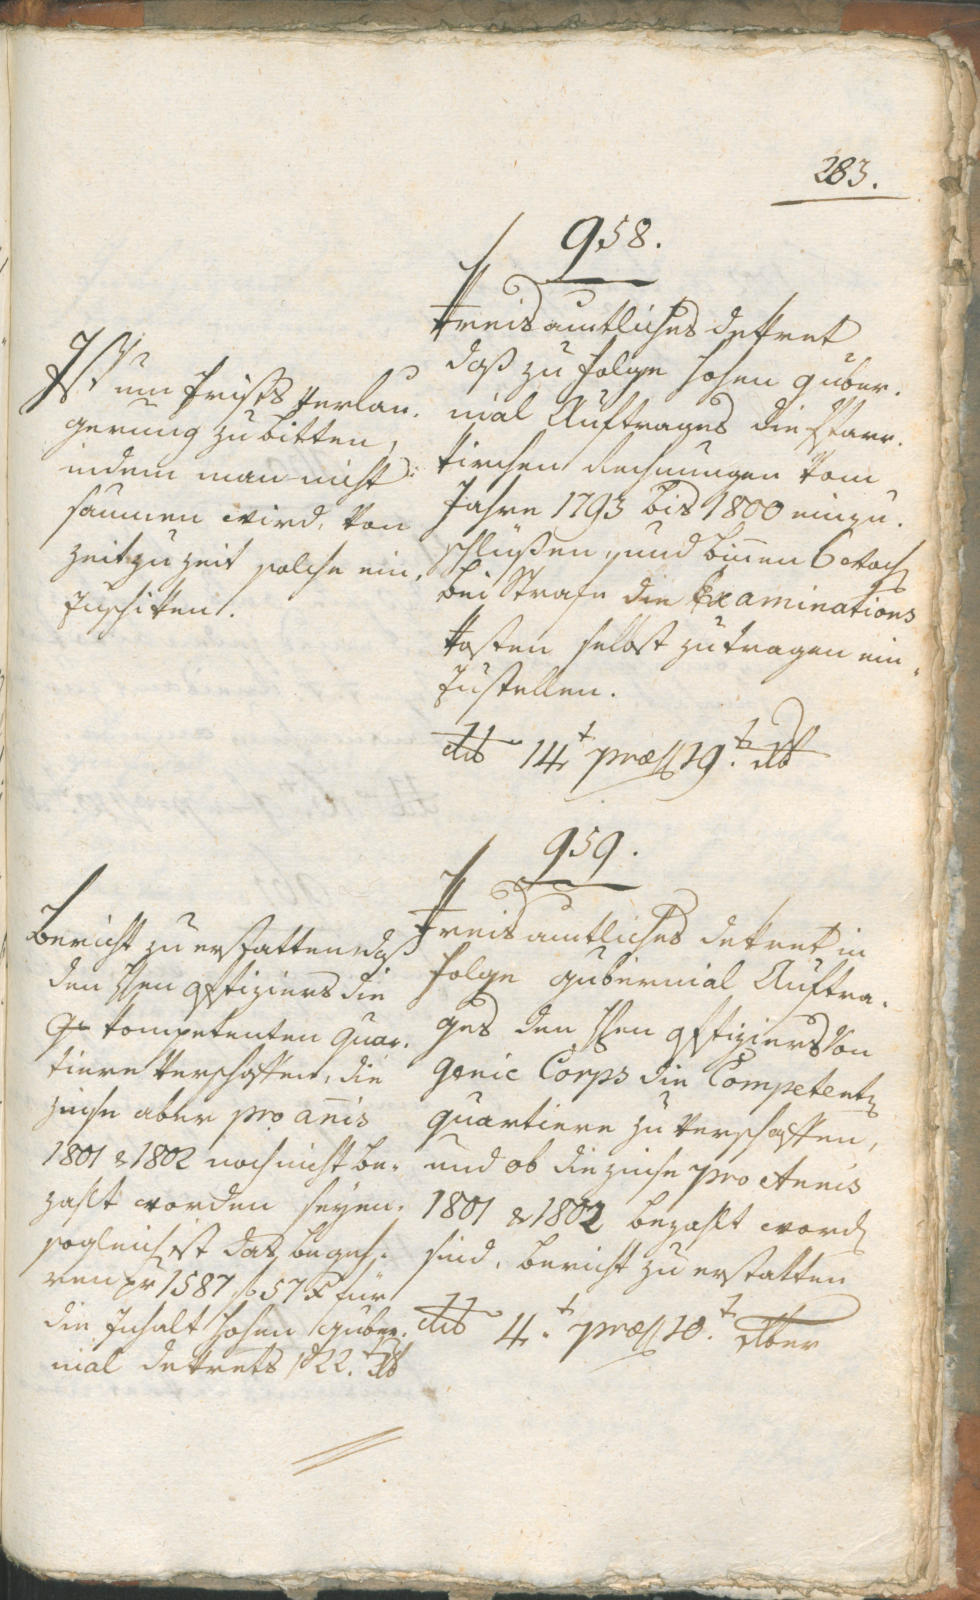 283.
958.
Kreisamtliches Dekret
daß zu folge hohen guber-
nial Auftrages die Pfarr-
kirchen Rechnungen vom
Jahre 1793 bis 1800 einzu-
schlüßen, und binnen 6 Woch
bei Strafe die Examinations
kosten selbst zu tragen ein-
zustellen.
14t præs 19.t
Ist um frists verlan-
gerung zu bitten,
indem man nicht
saumen wird, von
Zeit zu Zeit solche ein-
zuschikken.
959.
Kreisamtliches Dekret in
folge gubernial Auftra-
ges den Hen Offiziers von
Genie Corps die Competent
quartiere zu verschaffen,
und ob die Zinse pro Annis
1801 & 1802 bezahlt word
sind, bericht zu erstatten
4.t præs 10.t
Bericht zu erstatten, daß
den Hen Offiziers die
kompetenten Quar-
tiere verschaffen, die
Zinse aber pro anis
1801 & 1802 noch nicht be-
zahlt worden seyen.
sogleich ist das begeh-
ren pr 1587 f 57 x für
die Inhalt hohen guber-
nial Dekrets 22.t